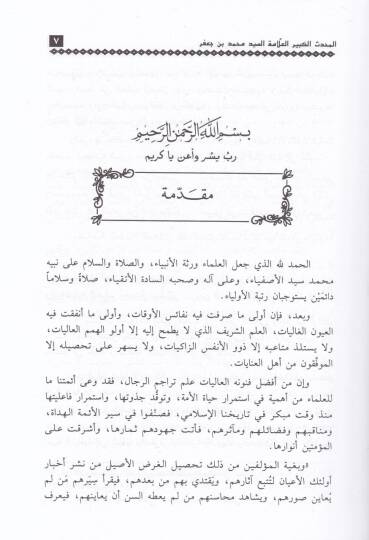 المحدث الكبير العلّامة السيد محمد بن جعفر
٧
بسم الله الرحمن الرحيم
ربّ يسّر وأعن يا كريم
مقدّمة
الحمد لله الذي جعل العلماء ورثة الأنبياء، والصلاة والسلام على نبيه
محمد سيد الأصفياء، وعلى آله وصحبه السادة الأتقياء، صلاةً وسلاماً
دائمَيْن يستوجبان رتبة الأولياء.
وبعد، فإن أولى ما صرفت فيه نفائس الأوقات، وأولى ما أنفقت فيه
العيون الغاليات، العلم الشريف الذي لا يطمح إليه إلا أولو الهمم العاليات،
ولا يستلذ متاعبه إلا ذوو الأنفس الزاكيات، ولا يسهر على تحصيله إلا
الموفّقون من أهل العنايات.
وإن من أفضل فنونه العاليات علم تراجم الرجال، فقد وعى أئمتنا ما
للعلماء من أهمية في استمرار حياة الأمة، وتوقُّد جذوتها، واستمرار فاعليتها
منذ وقت مبكر في تاريخنا الإسلامي، فصنّفوا في سير الأئمة الهداة،
ومناقبهم وفضائلهم ومآثرهم، فأتت جهودهم ثمارها، وأشرقت على
المؤمنين أنوارها.
«وبغية المؤلفين من ذلك تحصيل الغرض الأصيل من نشر أخبار
أولئك الأعيان لتُتبع آثارهم، ويَقتدي بهم من بعدهم، فيقرأ سِيَرهم مَن لم
يُعاين صورهم، ويشاهد محاسنهم من لم يعطه السن أن يعاينهم، فيعرف